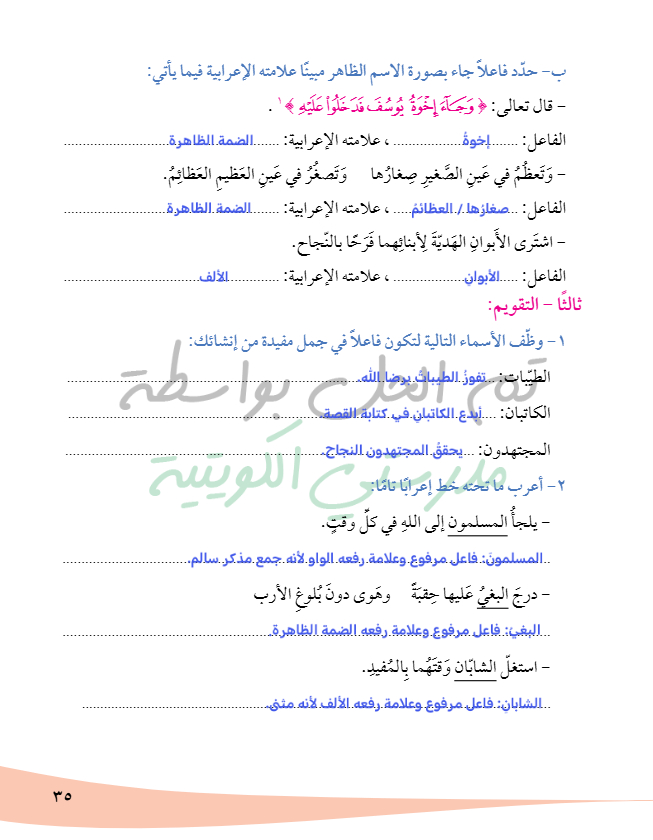 ب- حدّد فاعلاً جاء بصورة الاسم الظاهر مبينًا علامته الإعرابية فيما يأتي:
- قال تعالى: ﴿ وَجَآءَ إِخْوَةُ يُوسُفَ فَدَخَلُوا۟ عَلَيْهِ ﴾ ١ .
الفاعل: ....... إخوةُ ................. ، علامته الإعرابية: ....... الضمة الظاهرة .......................
- وَتَعظُمُ في عَينِ الصَّغيرِ صِغارُها وَتَصغُرُ في عَينِ العَظيمِ العَظائِمُ.
الفاعل: ... صغارُها / العظائمُ ..... ، علامته الإعرابية: ....... الضمة الظاهرة .......................
- اشتَرى الأَبوانِ الهَديّةَ لِأبنائِهما فَرَحًا بالنّجاح.
الفاعل: ..... الأبوانِ ................. ، علامته الإعرابية: ............. الألف .......................
ثالثًا - التقويم:
١- وظّف الأسماء التالية لتكون فاعلاً في جمل مفيدة من إنشائك:
تم الحل بواسطة
الطيّبات: ... تفوزُ الطيباتُ برضا الله. .......................
الكاتبان: .... أبدع الكاتبانِ في كتابة القصة. .......................
المجتهدون: .... يحققُ المجتهدون النجاح. .......................
مدرستي الكويتية
٢- أعرب ما تحته خط إعرابًا تامًّا:
- يلجأُ المسلمون إلى اللهِ في كلِّ وقتٍ.
.. المسلمون: فاعل مرفوع وعلامة رفعه الواو لأنه جمع مذكر سالم. .......................
- درجَ البغيُ عَليها حِقبَةً وهَوى دونَ بُلوغِ الأرب
.. البغيُ: فاعل مرفوع وعلامة رفعه الضمة الظاهرة. .......................
- استغلّ الشابّان وَقتَهُما بِالمُفيدِ.
.. الشابانِ: فاعل مرفوع وعلامة رفعه الألف لأنه مثنى. .......................
٣٥